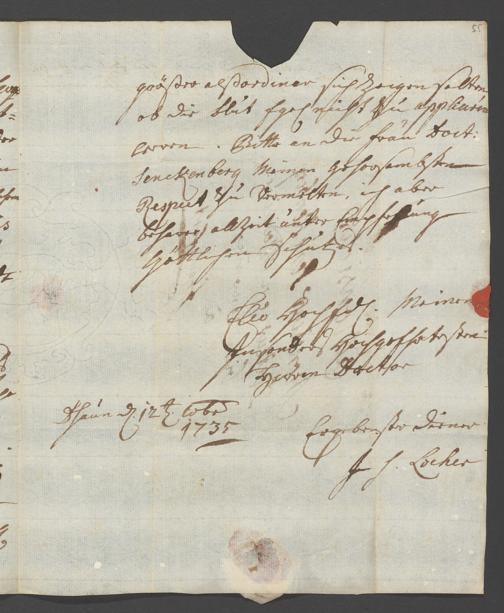 größer als ordinar sich zeigen solten
ob die blut Egel nicht zu appliciren
weren. Bitte an die Frau Doct:
Senckenberg Meinen gehorsambsten
Respect zu Vermelten, ich aber
beharre allzeit unter Empfehlung
Göttlichen Schutzes.
Meines
Insonders Hochgeehrtesten
Herren Doctor
Dhaun d 12t 8bris
1735
Ergebenster diener
J. H. Locher
55